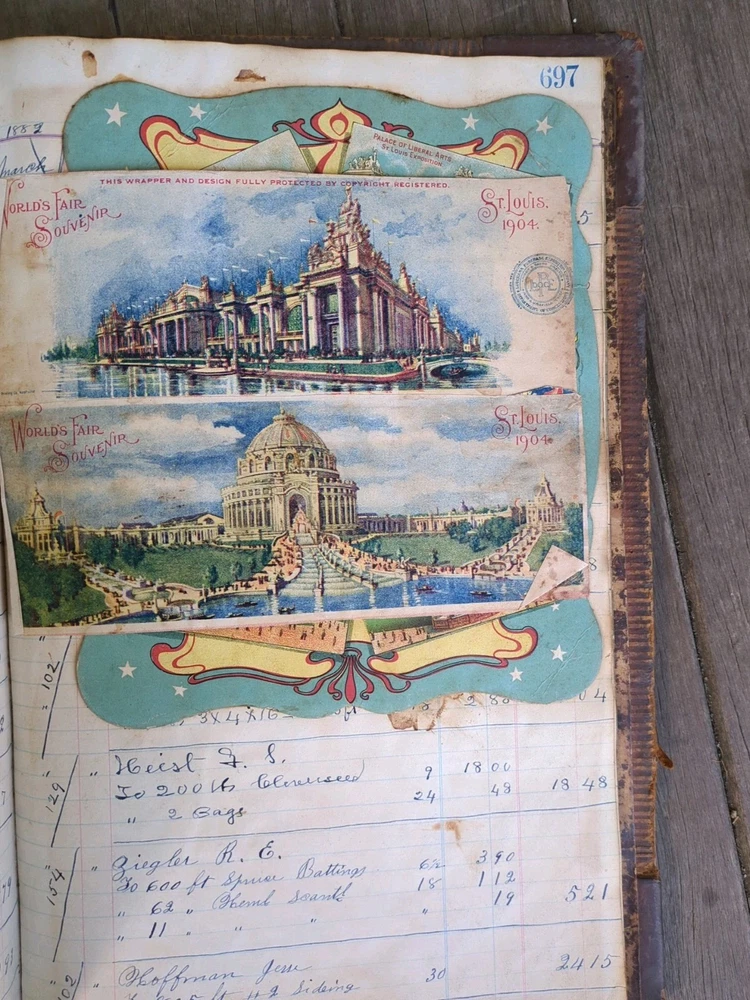 697
1882
PALACE OF LIBERAL ARTS.
ST. LOUIS EXPOSITION.
THIS WRAPPER AND DESIGN FULLY PROTECTED BY COPYRIGHT. REGISTERED.
WORLD'S FAIR
SOUVENIR
ST. LOUIS.
1904.
5
WORLD'S FAIR
SOUVENIR
ST. LOUIS.
1904.
8
102
3X4X16
" Heist G. S.
To 200 lb Cloverseed 9 18 00
" 2 Bags 24 48 18 48
129
" Ziegler R. E.
To 600 ft Spruce Battings 65 3 90
" 62 " Hemb Scantl 18 1 12
" 11 " " " " 19 5 21
154
" Hoffman Jesse
30 24 15
ft #2 Siding